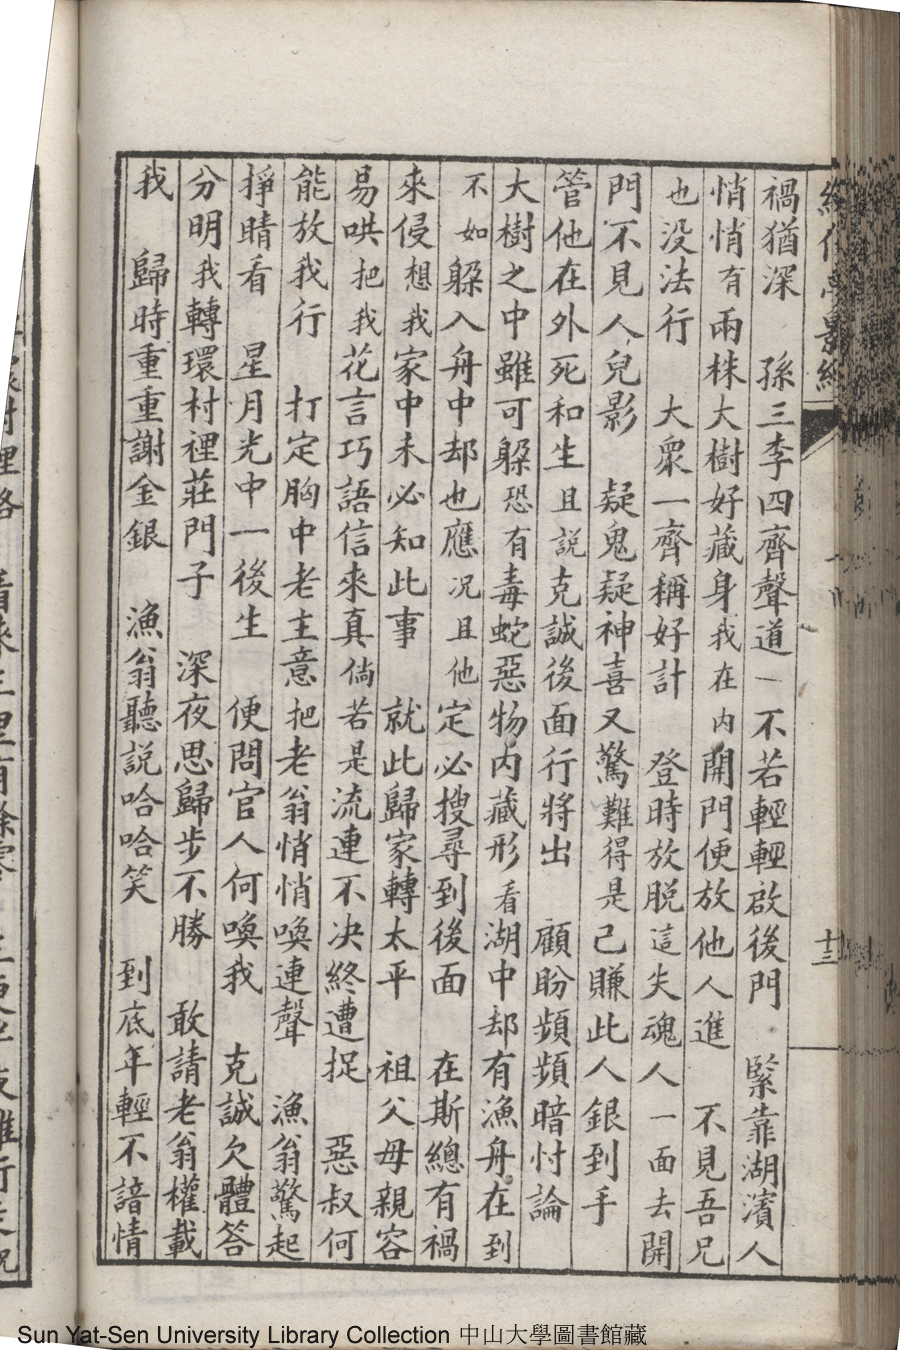 十三
禍猶深　孫三李四齊聲道　一不若輕輕啟後門　緊靠湖濱人
悄悄有兩株大樹好藏身我在内開門便放他人進　不見吾兄
也没法行　大衆一齊稱好計　登時放脱這失魂人　一面去開
門不見人兒影　疑鬼疑神喜又驚難得是己賺此人銀到手
管他在外死和生且説克誠後面行將出　顧盼頻頻暗忖論
大樹之中雖可躱恐有毒蛇惡物内藏形看湖中却有漁舟在到
不如躱入舟中却也應况且他定必搜尋到後面　在斯總有禍
來侵想我家中未必知此事　就此歸家轉太平　祖父母親容
易哄把我花言巧語信來真倘若是流連不决終遭捉　惡叔何
能放我行　打定胸中老主意把老翁悄悄喚連聲　漁翁驚起
掙睛看　星月光中一後生　便問官人何喚我　克誠欠體答
分明我轉環村裡莊門子　深夜思歸步不勝　敢請老翁權載
我　歸時重重謝金銀　漁翁聽説哈哈笑　到底年輕不諳情
Sun Yat-Sen University Library Collection 中山大學圖書館藏